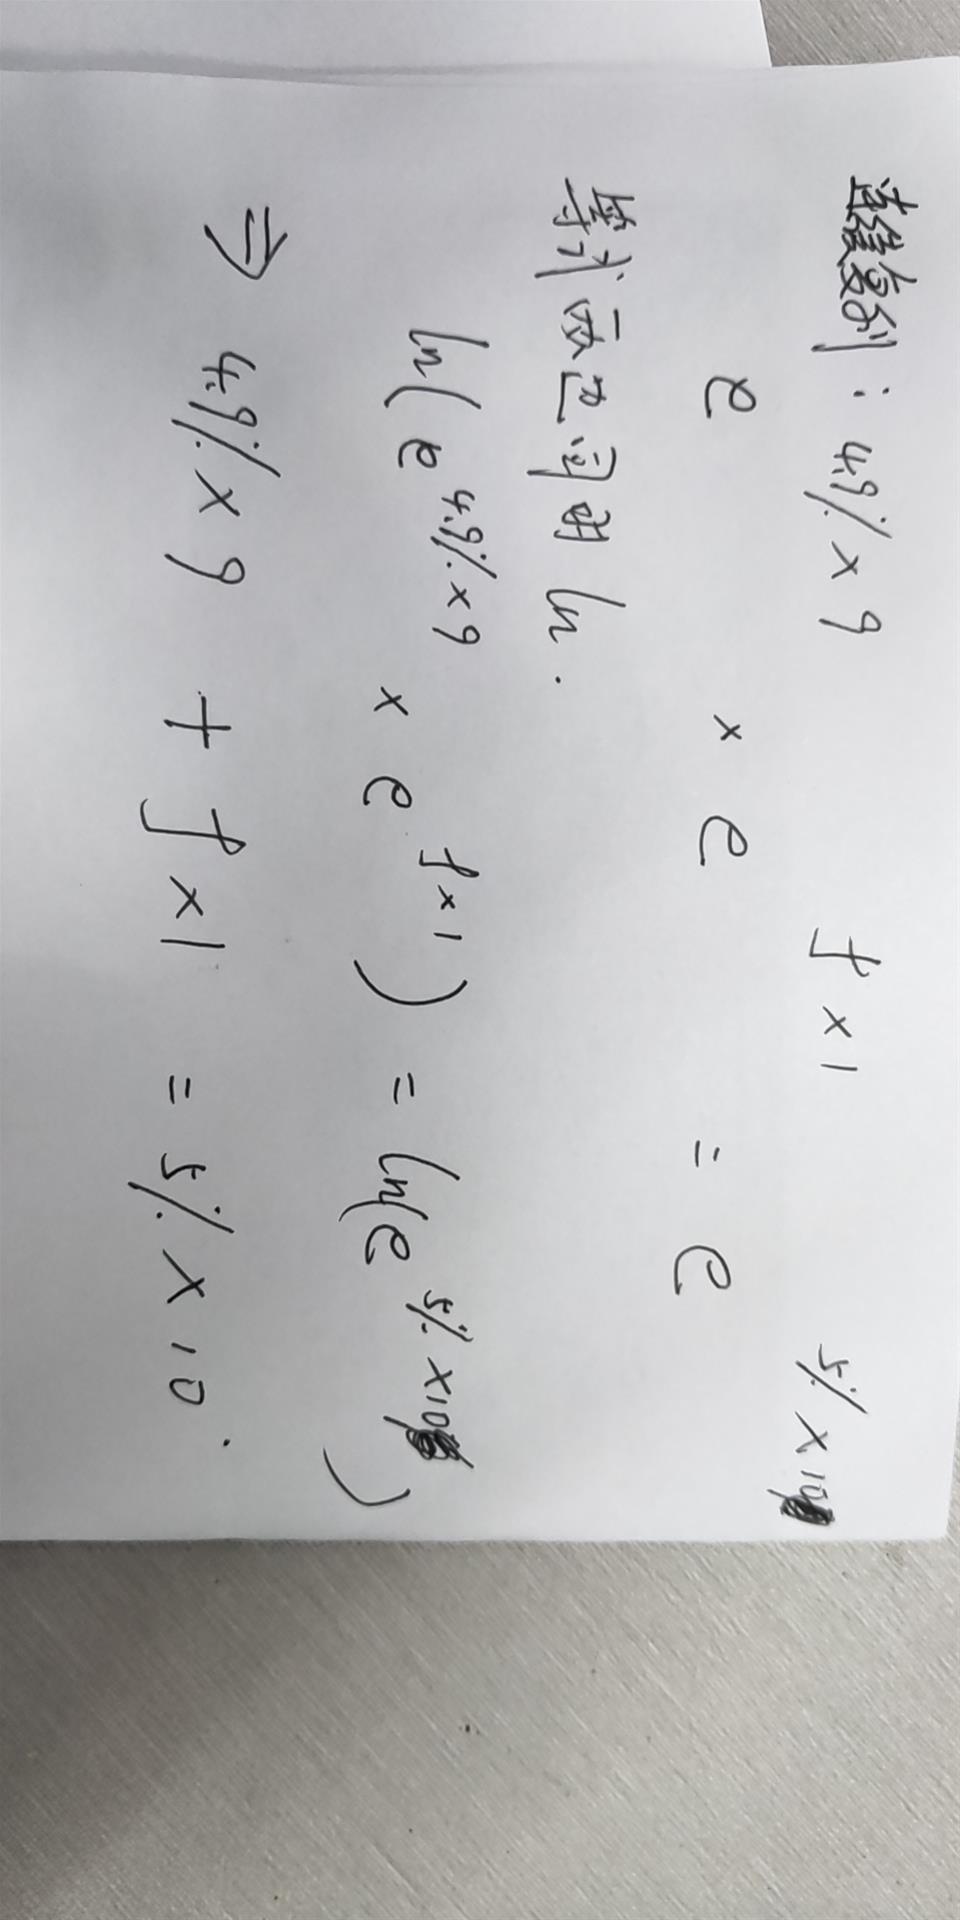 连续复利：
e^4.9%×9 × e^f×1 = e^5%×10
等式两边同时 ln.
ln(e^4.9%×9 × e^f×1) = ln(e^5%×10)
⇒ 4.9%×9 + f×1 = 5%×10.